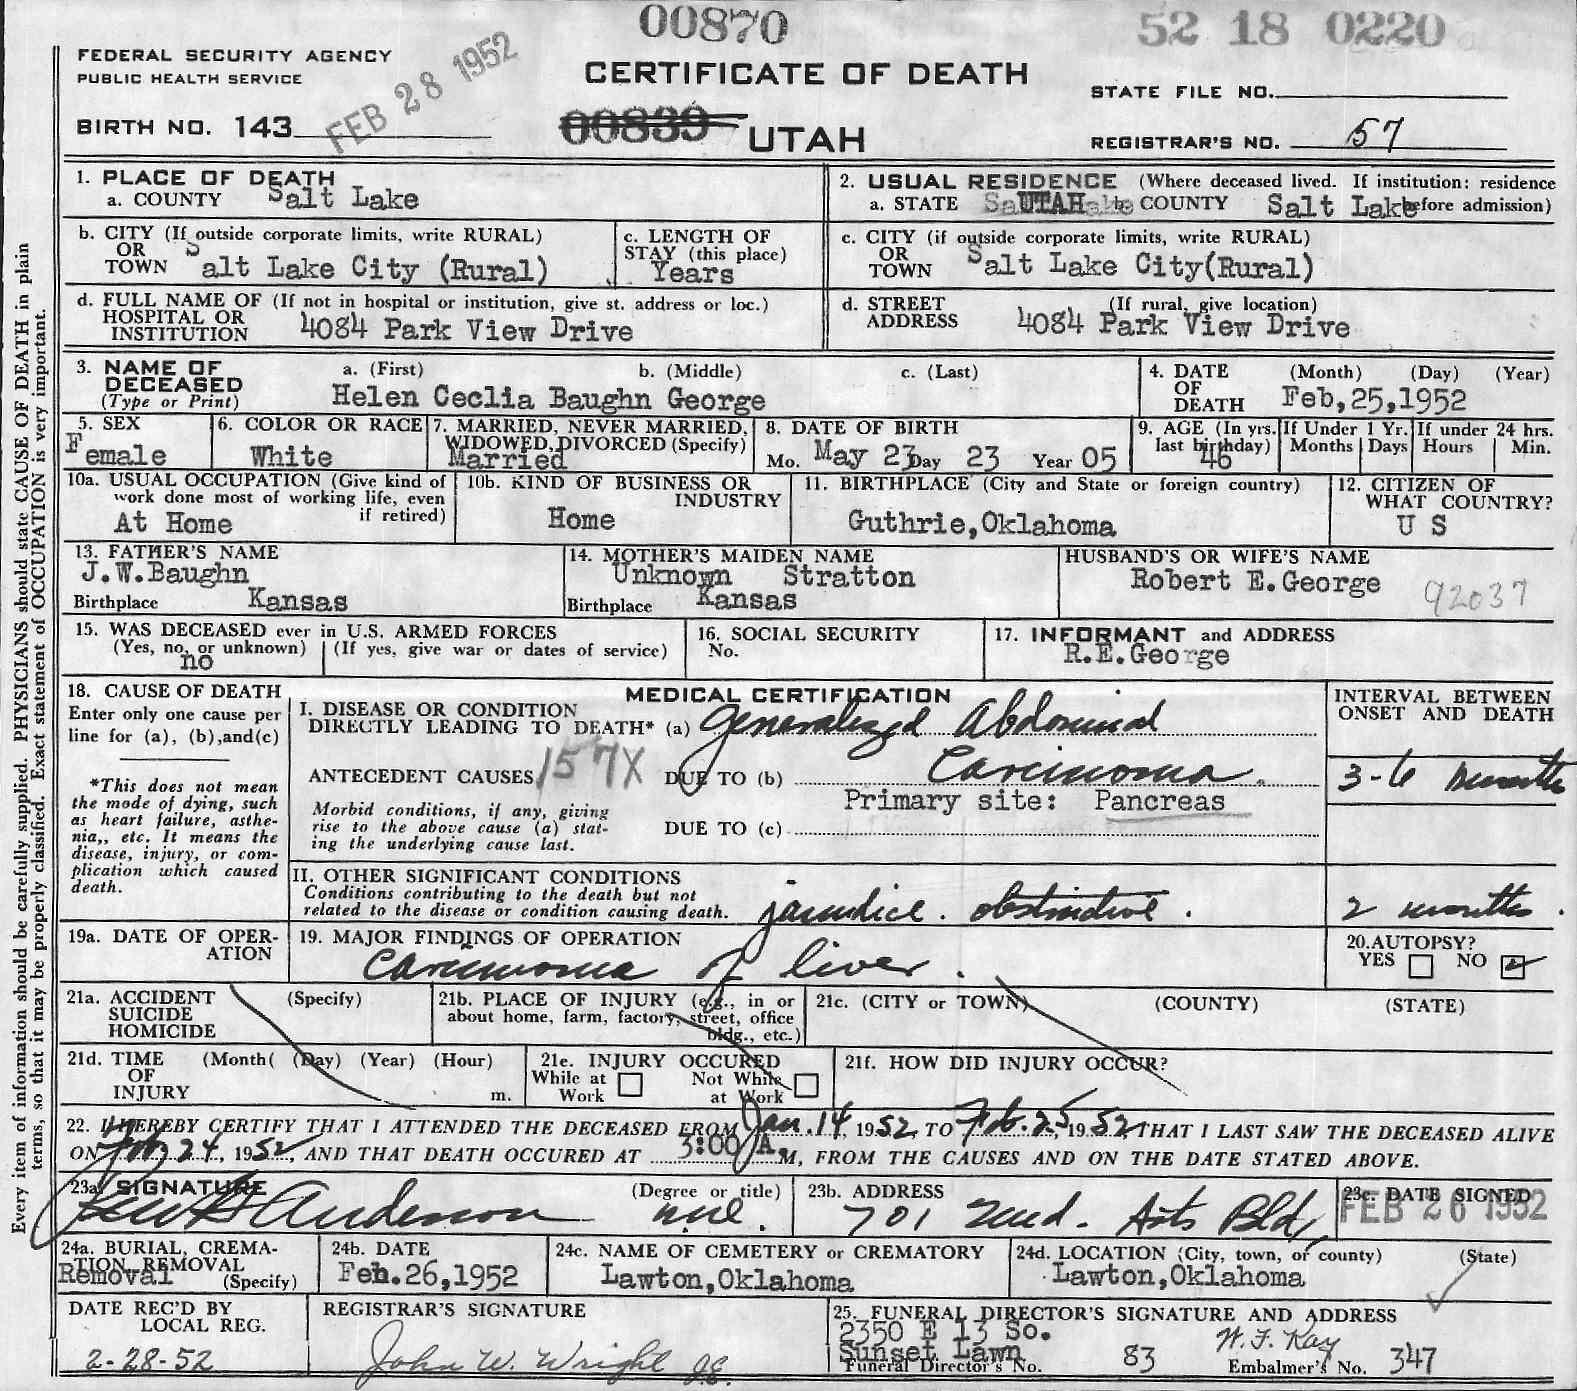 00870
52 18 0220
FEDERAL SECURITY AGENCY
PUBLIC HEALTH SERVICE
FEB 28 1952
CERTIFICATE OF DEATH
STATE FILE NO.
BIRTH NO. 143
00839 UTAH
REGISTRAR'S NO. 57
1. PLACE OF DEATH
a. COUNTY Salt Lake
2. USUAL RESIDENCE (Where deceased lived. If institution: residence before admission)
a. STATE UTAH COUNTY Salt Lake
b. CITY (If outside corporate limits, write RURAL)
OR TOWN Salt Lake City (Rural)
c. LENGTH OF STAY (this place)
Years
c. CITY (if outside corporate limits, write RURAL)
OR TOWN Salt Lake City(Rural)
d. FULL NAME OF (If not in hospital or institution, give st. address or loc.)
HOSPITAL OR INSTITUTION 4084 Park View Drive
d. STREET ADDRESS (If rural, give location)
4084 Park View Drive
3. NAME OF DECEASED (Type or Print)
a. (First) b. (Middle) c. (Last)
Helen Ceclia Baughn George
4. DATE OF DEATH (Month) (Day) (Year)
Feb,25,1952
5. SEX
Female
6. COLOR OR RACE
White
7. MARRIED, NEVER MARRIED, WIDOWED, DIVORCED (Specify)
Married
8. DATE OF BIRTH
Mo. May 23 Day 23 Year 05
9. AGE (In yrs. last birthday)
46
If Under 1 Yr. Months Days
If under 24 hrs. Hours Min.
10a. USUAL OCCUPATION (Give kind of work done most of working life, even if retired)
At Home
10b. KIND OF BUSINESS OR INDUSTRY
Home
11. BIRTHPLACE (City and State or foreign country)
Guthrie,Oklahoma
12. CITIZEN OF WHAT COUNTRY?
U S
13. FATHER'S NAME
J.W.Baughn
Birthplace Kansas
14. MOTHER'S MAIDEN NAME
Unknown Stratton
Birthplace Kansas
HUSBAND'S OR WIFE'S NAME
Robert E.George
92037
15. WAS DECEASED ever in U.S. ARMED FORCES
(Yes, no, or unknown) (If yes, give war or dates of service)
no
16. SOCIAL SECURITY No.
17. INFORMANT and ADDRESS
R.E.George
18. CAUSE OF DEATH
Enter only one cause per line for (a), (b),and(c)
*This does not mean the mode of dying, such as heart failure, asthenia,, etc. It means the disease, injury, or complication which caused death.
MEDICAL CERTIFICATION
I. DISEASE OR CONDITION DIRECTLY LEADING TO DEATH* (a) Generalized Abdominal
ANTECEDENT CAUSES 157X DUE TO (b) Carcinoma.
Primary site: Pancreas
Morbid conditions, if any, giving rise to the above cause (a) stating the underlying cause last.
DUE TO (c)
INTERVAL BETWEEN ONSET AND DEATH
3-6 months
II. OTHER SIGNIFICANT CONDITIONS
Conditions contributing to the death but not related to the disease or condition causing death.
jaundice. obstructive.
2 months.
19a. DATE OF OPERATION
19. MAJOR FINDINGS OF OPERATION
Carcinoma of liver.
20.AUTOPSY?
YES NO
21a. ACCIDENT SUICIDE HOMICIDE (Specify)
21b. PLACE OF INJURY (e.g., in or about home, farm, factory, street, office bldg., etc.)
21c. (CITY or TOWN) (COUNTY) (STATE)
21d. TIME OF INJURY (Month( (Day) (Year) (Hour) m.
21e. INJURY OCCURED
While at Work Not While at Work
21f. HOW DID INJURY OCCUR?
22. I HEREBY CERTIFY THAT I ATTENDED THE DECEASED FROM Jan. 14, 1952, TO Feb. 25, 1952, THAT I LAST SAW THE DECEASED ALIVE
ON Feb. 24, 1952, AND THAT DEATH OCCURED AT 3:00 A. M, FROM THE CAUSES AND ON THE DATE STATED ABOVE.
23a. SIGNATURE Anderson (Degree or title)
23b. ADDRESS
701 Med. Arts Bldg
23c. DATE SIGNED
FEB 26 1952
24a. BURIAL, CREMATION, REMOVAL (Specify)
Removal
24b. DATE
Feb.26,1952
24c. NAME OF CEMETERY or CREMATORY
Lawton,Oklahoma
24d. LOCATION (City, town, or county) (State)
Lawton,Oklahoma
DATE REC'D BY LOCAL REG.
2-28-52
REGISTRAR'S SIGNATURE
John W. Wright
25. FUNERAL DIRECTOR'S SIGNATURE AND ADDRESS
2350 E 13 So.
Sunset Lawn
W. F. Kay
Funeral Director's No. 83 Embalmer's No. 347
Every item of information should be carefully supplied. PHYSICIANS should state CAUSE OF DEATH in plain
terms, so that it may be properly classified. Exact statement of OCCUPATION is very important.